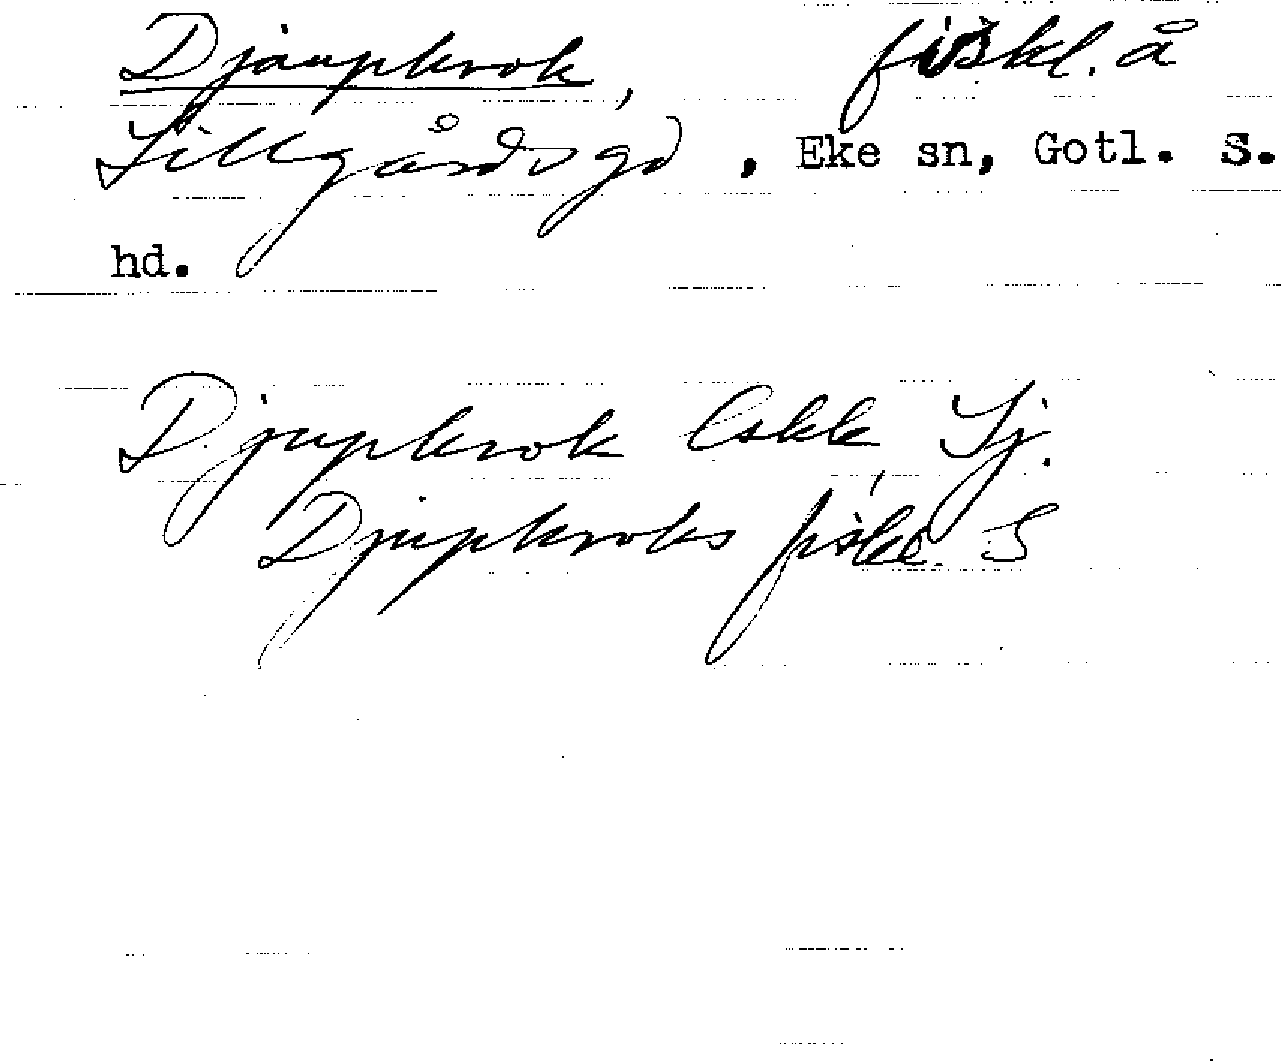 Djaupkrok, fiskl. å
Lillgårds gd, Eke sn, Gotl. S.
hd.
Djupkrok Eskk Lj.
Djupkroks fiske. S